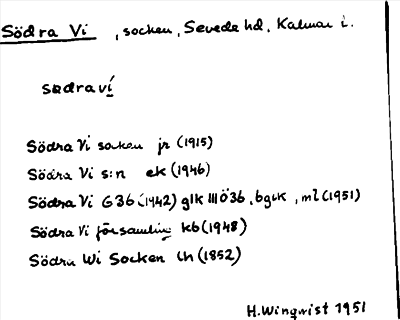 Södra Vi , socken, Sevede hd, Kalmar l.
södraví
Södra Vi socken jr (1915)
Södra Vi s:n ek (1946)
Södra Vi G36 (1942) glk III Ö36, bglk, ml (1951)
Södra Vi församling kb (1948)
Södra Wi Socken lh (1852)
H. Winqwist 1951